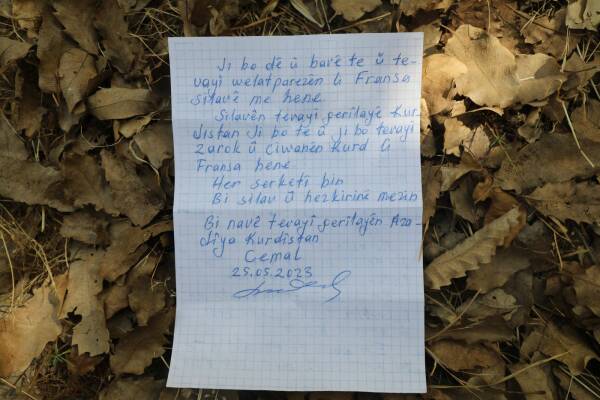 Ji bo dê û bavê te û te-
vayî welatparêzên li Fransa
silavê me hene.
Silavên tevayî gerîlayê Kur-
distan Ji bo te û ji bo tevayî
zarok û ciwanên Kurd li
Fransa hene
Her serketî bin
Bi silav û hezkirinê mezin
Bi navê tevayî gerîlayên Aza-
dîya Kurdistan
Cemal
25.05.2023